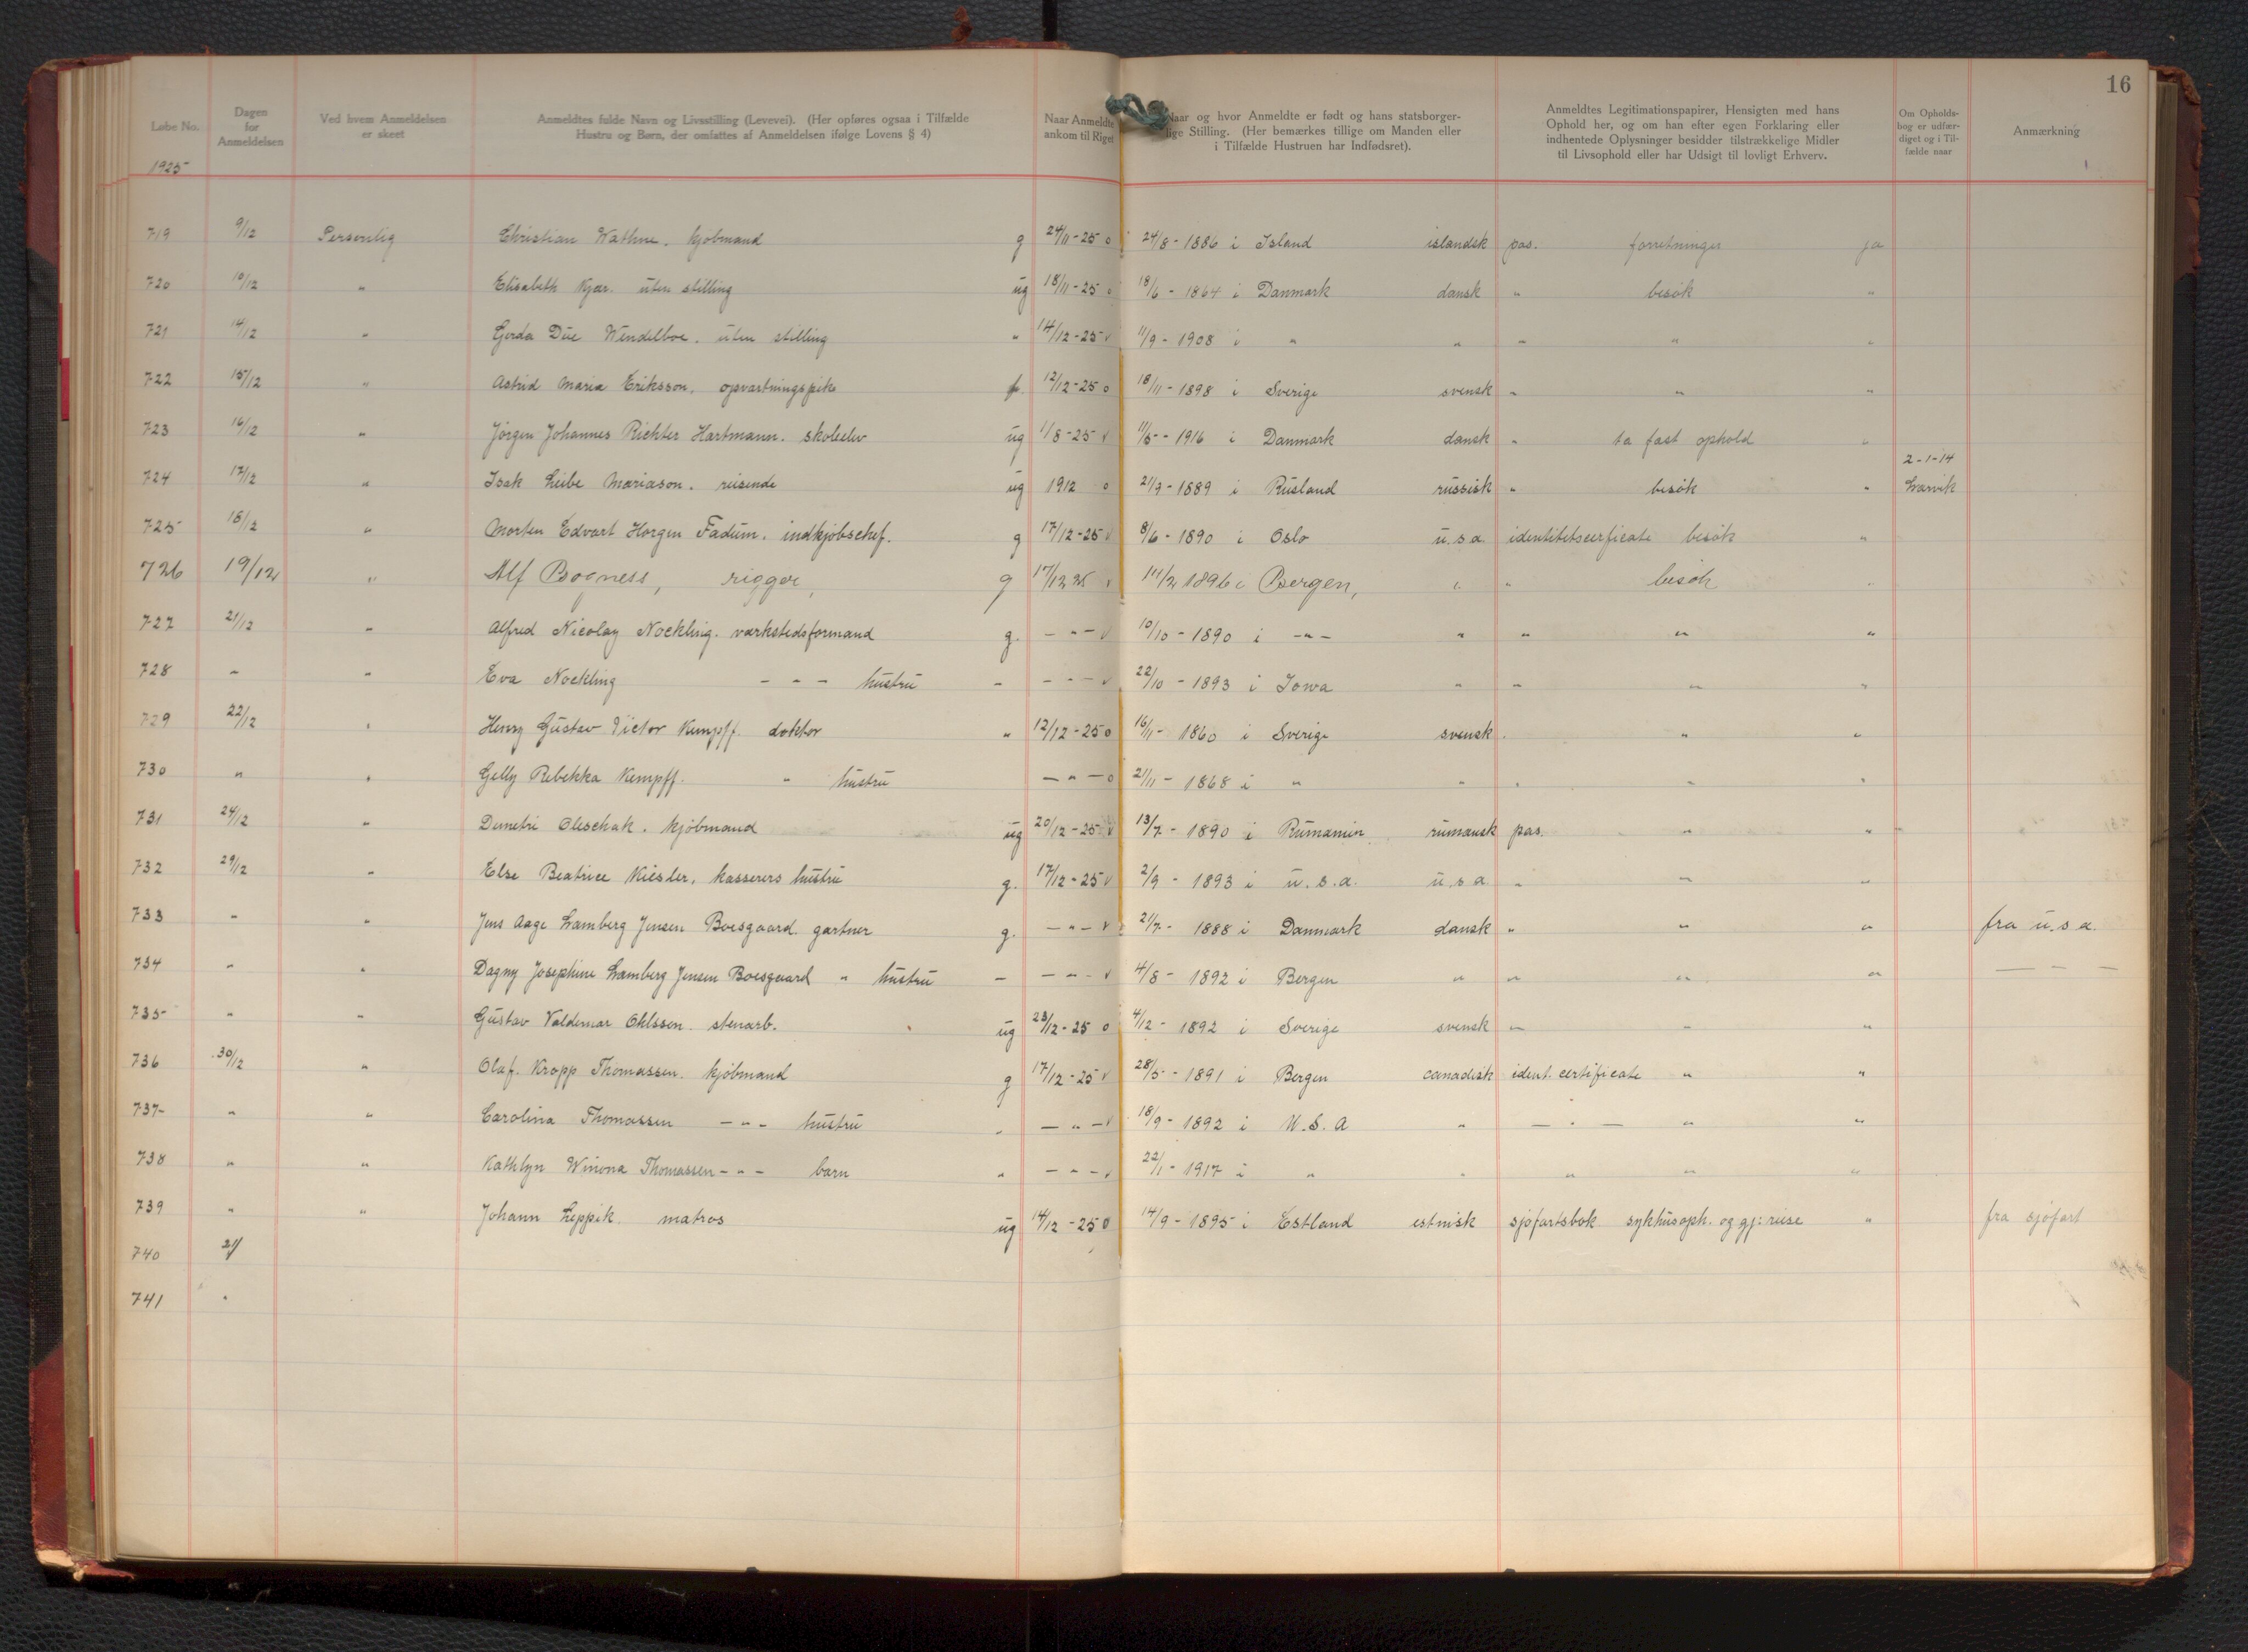 16
Løbe No. Dagen for Anmeldelsen Ved hvem Anmeldelsen er skeet Anmeldtes fulde Navn og Livsstilling (Levevei). (Her opføres ogsaa i Tilfælde Hustru og Børn, der omfattes af Anmeldelsen ifølge Lovens § 4) Naar Anmeldte ankom til Riget Naar og hvor Anmeldte er født og hans statsborgerlige Stilling. (Her bemærkes tillige om Manden eller i Tilfælde Hustruen har Indfødsret). Anmeldtes Legitimationspapirer, Hensigten med hans Ophold her, og om han efter egen Forklaring eller indhentede Oplysninger besidder tilstrækkelige Midler til Livsophold eller har Udsigt til lovligt Erhverv. Om Opholdsbog er udfærdiget og i Tilfælde naar Anmærkning
1925
719 9/12 Personlig Christian Wathne. kjöbmand g 24/11-25 o 24/8-1886 i Island islandsk pas. forretninger ja
720 10/12 " Elisabeth Kjær. uten stilling ug 18/11-25 o 18/6-1864 i Danmark dansk " besök "
721 14/12 " Gerda Due Wendelboe. uten stilling " 14/12-25 v 11/9-1908 i " " " " "
722 15/12 " Astrid Maria Eriksson. opvartningspike f. 12/12-25 o 18/11-1898 i Sverige svensk " " "
723 16/12 " Jörgen Johannes Richter Hartmann. skoleelev ug 1/8-25 v 11/5-1916 i Danmark dansk " ta fast ophold "
724 17/12 " Isak Leibe Mariason. reisende ug 1912 o 21/9-1889 i Rusland russisk " besök " 2-1-14 Larvik
725 18/12 " Morten Edvart Horgen Fadum. indkjöbschef. g 17/12-25 v 8/6-1890 i Oslo u.s.a. identitetscerficate besök "
726 19/12 " Alf Bogness, rigger, g 17/12 25 v 14/2 1896 i Bergen, " " besök "
727 21/12 " Alfred Nicolay Nockling. værkstedsformand g. - " - v 10/10-1890 i -"- " " " "
728 - " Eva Nockling - - - hustru - - " - v 22/10-1893 i Iowa " " " "
729 22/12 " Henry Gustav Victor Kempff. doktor " 12/12-25 o 16/11-1860 i Sverige svensk . " "
730 " " Gelly Rebekka Kempff. " hustru - " - o 21/11-1868 i " " " " "
731 24/12 " Dimetri Oleschak. kjöbmand ug 20/12-25 v 13/7-1890 i Rumænien rumænsk pas. " "
732 29/12 " Else Beatrice Kiesler. kasserers hustru g. 17/12-25 v 2/9-1893 i u.s.a. u.s.a " " "
733 " " Jens Aage Lamberg Jensen Boesgaard. gartner g. - " - v 21/7-1888 i Danmark dansk " " " fra u.s.a.
734 " " Dagny Josephine Lamberg Jensen Boesgaard " hustru - - " - v 4/8-1892 i Bergen " " " " - - -
735 " " Gustav Valdemar Ohlssen. stenarb. ug 23/12-25 o 4/12-1892 i Sverige svensk " " "
736 30/12 " Olaf. Kropp Thomassen. kjöbmand g 17/12-25 v 28/5-1891 i Bergen canadisk ident. certificate " "
737 " " Carolina Thomassen - " - hustru " - " - v 18/9-1892 i U.S.A " - " - " "
738 " " Kathlyn Winona Thomassen - " - barn " - " - v 22/1-1917 i " " " " "
739 " " Johann Leppik. matros ug 14/12-25 o 14/9-1895 i Estland estnisk sjöfartsbok sykhusoph. og gj: reise " fra sjöfart
740 21/
741 "